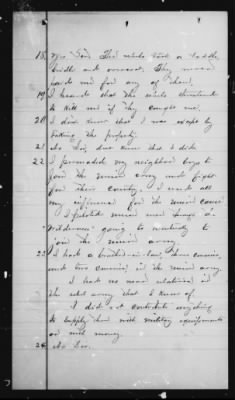 18, Yes Sir. The rebels took a saddle,
bridle and overcoat. They never
paid me for any of them.
19, I heard that the rebels threatened
to kill me if they caught me.
20, I did not know that I was
taking the property.
21, No Sir, don't know that I did.
22, I persuaded my neighbor boys to
join the union army and fight
for their country. I used all
my influence for the union cause
I piloted union men through a
wilderness going to Kentucky to
join the union army.
23, I had a brother-in-law, three cousins,
and two cousins, in the union army.
I had no near relatives in
the rebel army that I know of.
I did not contribute anything
to supply them with military equipments
or with money.
24, No Sir.